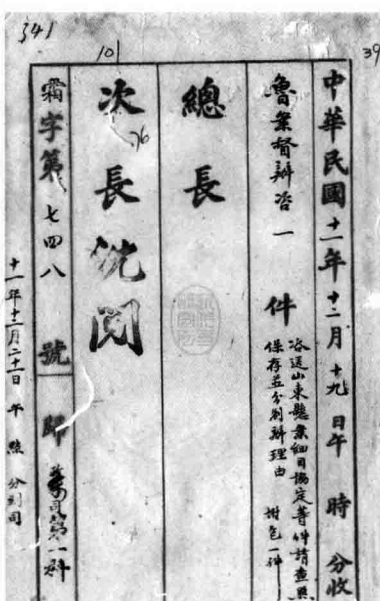 341
101
39
中華民國十一年十二月十九日午 時 分收
魯案督辦咨一 件
咨送山東懸案細目協定等件請查照
保存並分別辦理由 附包一件
總長
次長沈閱
76
霜字第七四八 號
第一科
十一年十二月二十日 午 分到司